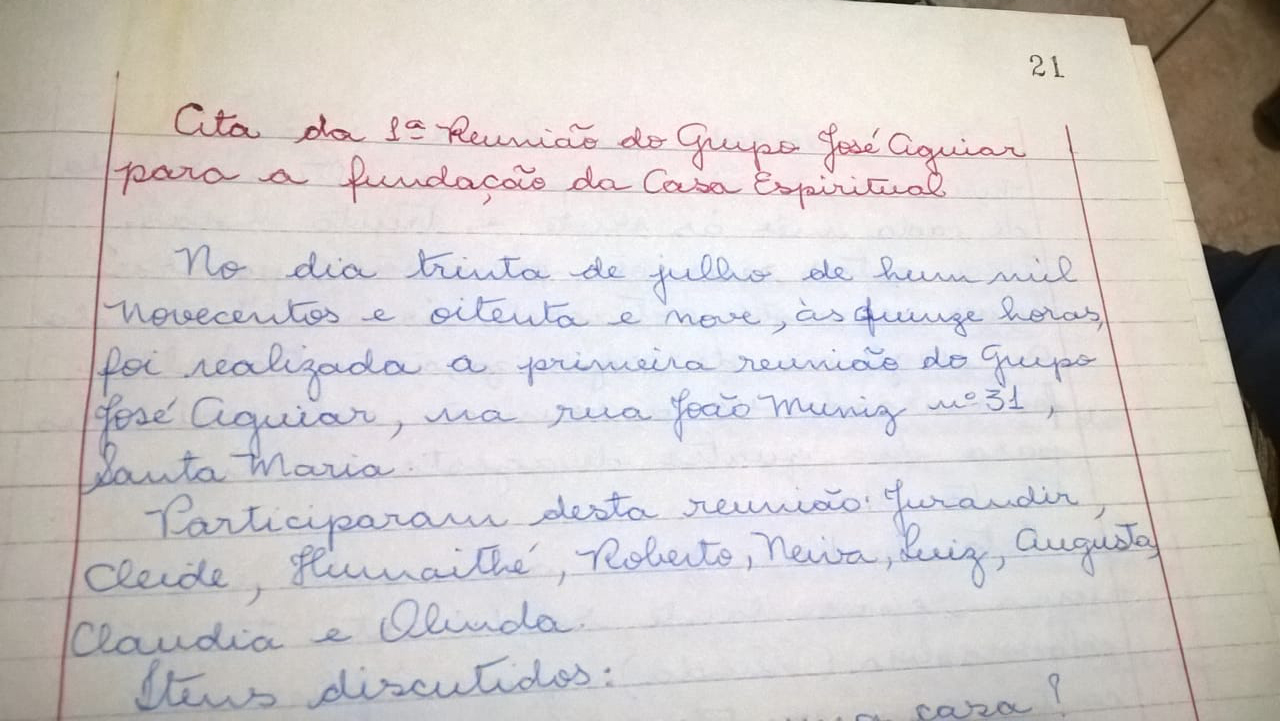 21
Ata da 1ª Reunião do Grupo José Aguiar
para a fundação da Casa Espiritual
No dia trinta de julho de hum mil
novecentos e oitenta e nove, às quinze horas,
foi realizada a primeira reunião do Grupo
José Aguiar, na rua João Muniz nº 31,
Santa Maria.
Participaram desta reunião: Jurandir,
Cleide, Humaithé, Roberto, Neiva, Luiz, Augusta,
Claudia e Olinda.
Itens discutidos:
casa?